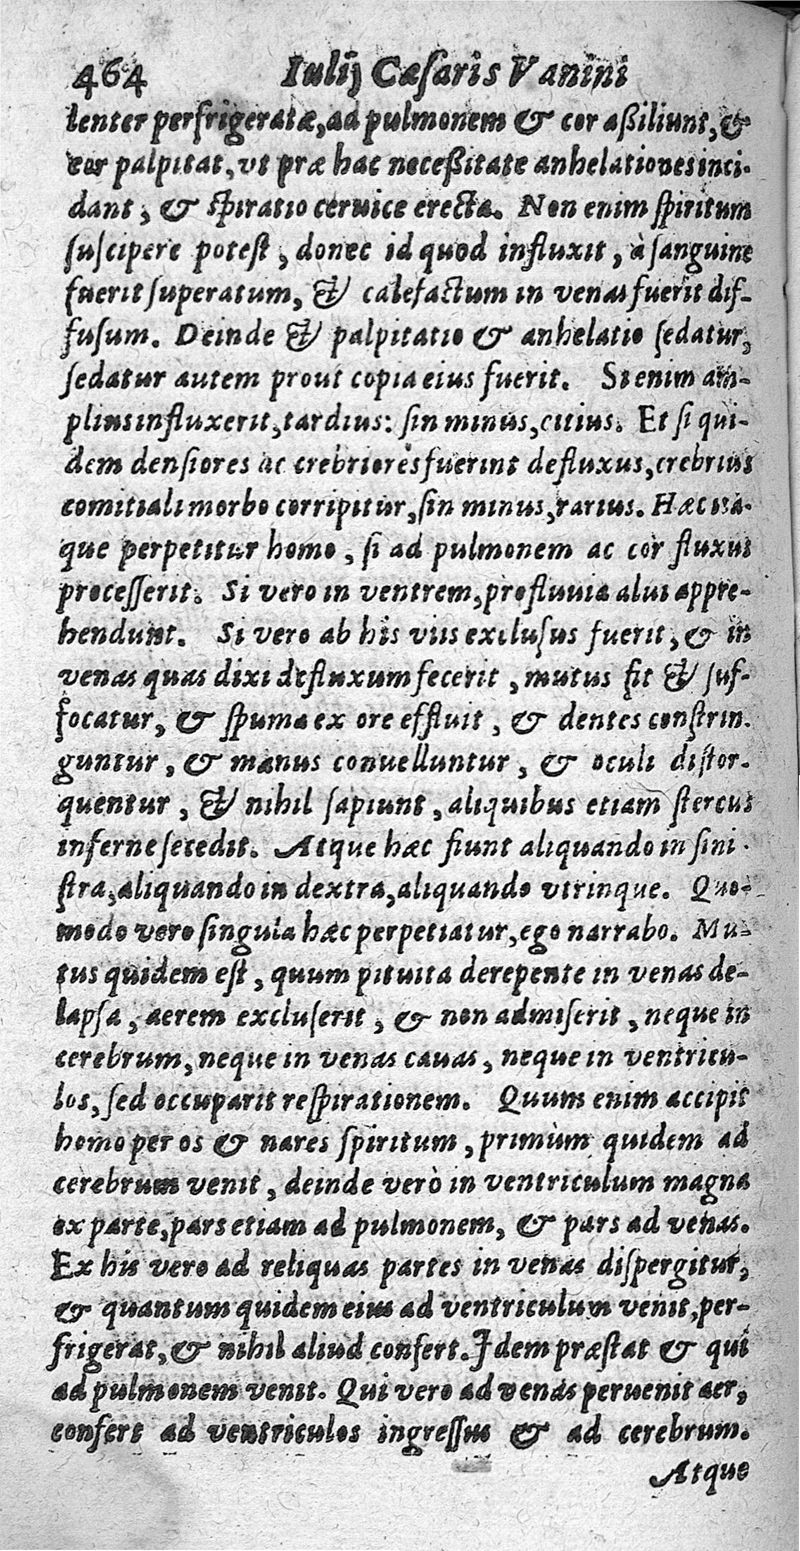 464 Iulij Cæſaris Vanini
lenter perfrigeratæ, ad pulmonem & cor aßiliunt, &
cor palpitat, vt præ hac neceßitate anhelationes inci-
dant, & ſpiratio ceruice erecta. Non enim ſpiritum
ſuſcipere poteſt, donec id quod influxit, à ſanguine
fuerit ſuperatum, & calefactum in venas fuerit dif-
fuſum. Deinde & palpitatio & anhelatio ſedatur,
ſedatur autem prout copia eius fuerit. Si enim am-
plius influxerit, tardius: ſin minus, citius. Et ſi qui-
dem denſiores ac crebriores fuerint defluxus, crebrius
comitiali morbo corripitur, ſin minus, rarius. Hæc ita-
que perpetitur homo, ſi ad pulmonem ac cor fluxus
proceſſerit. Si vero in ventrem, profluuia alui appre-
hendunt. Si vero ab his viis excluſus fuerit, & in
venas quas dixi defluxum fecerit, mutus fit & ſuf-
focatur, & ſpuma ex ore effluit, & dentes conſtrin-
guntur, & manus conuelluntur, & oculi diſtor-
quentur, & nihil ſapiunt, aliquibus etiam ſtercus
inferne ſecedit. Atque hæc fiunt aliquando in ſini-
ſtra, aliquando in dextra, aliquando vtrinque. Quo-
modo vero ſingula hæc perpetiatur, ego narrabo. Mu-
tus quidem eſt, quum pituita derepente in venas de-
lapſa, aerem excluſerit, & non admiſerit, neque in
cerebrum, neque in venas cauas, neque in ventricu-
los, ſed occuparit reſpirationem. Quum enim accipit
homo per os & nares ſpiritum, primùm quidem ad
cerebrum venit, deinde verò in ventriculum magna
ex parte, pars etiam ad pulmonem, & pars ad venas.
Ex his vero ad reliquas partes in venas diſpergitur,
& quantum quidem eius ad ventriculum venit, per-
frigerat, & nihil aliud confert. Idem præſtat & qui
ad pulmonem venit. Qui vero ad venas peruenit aer,
confert ad ventriculos ingreſſus & ad cerebrum.
Atque